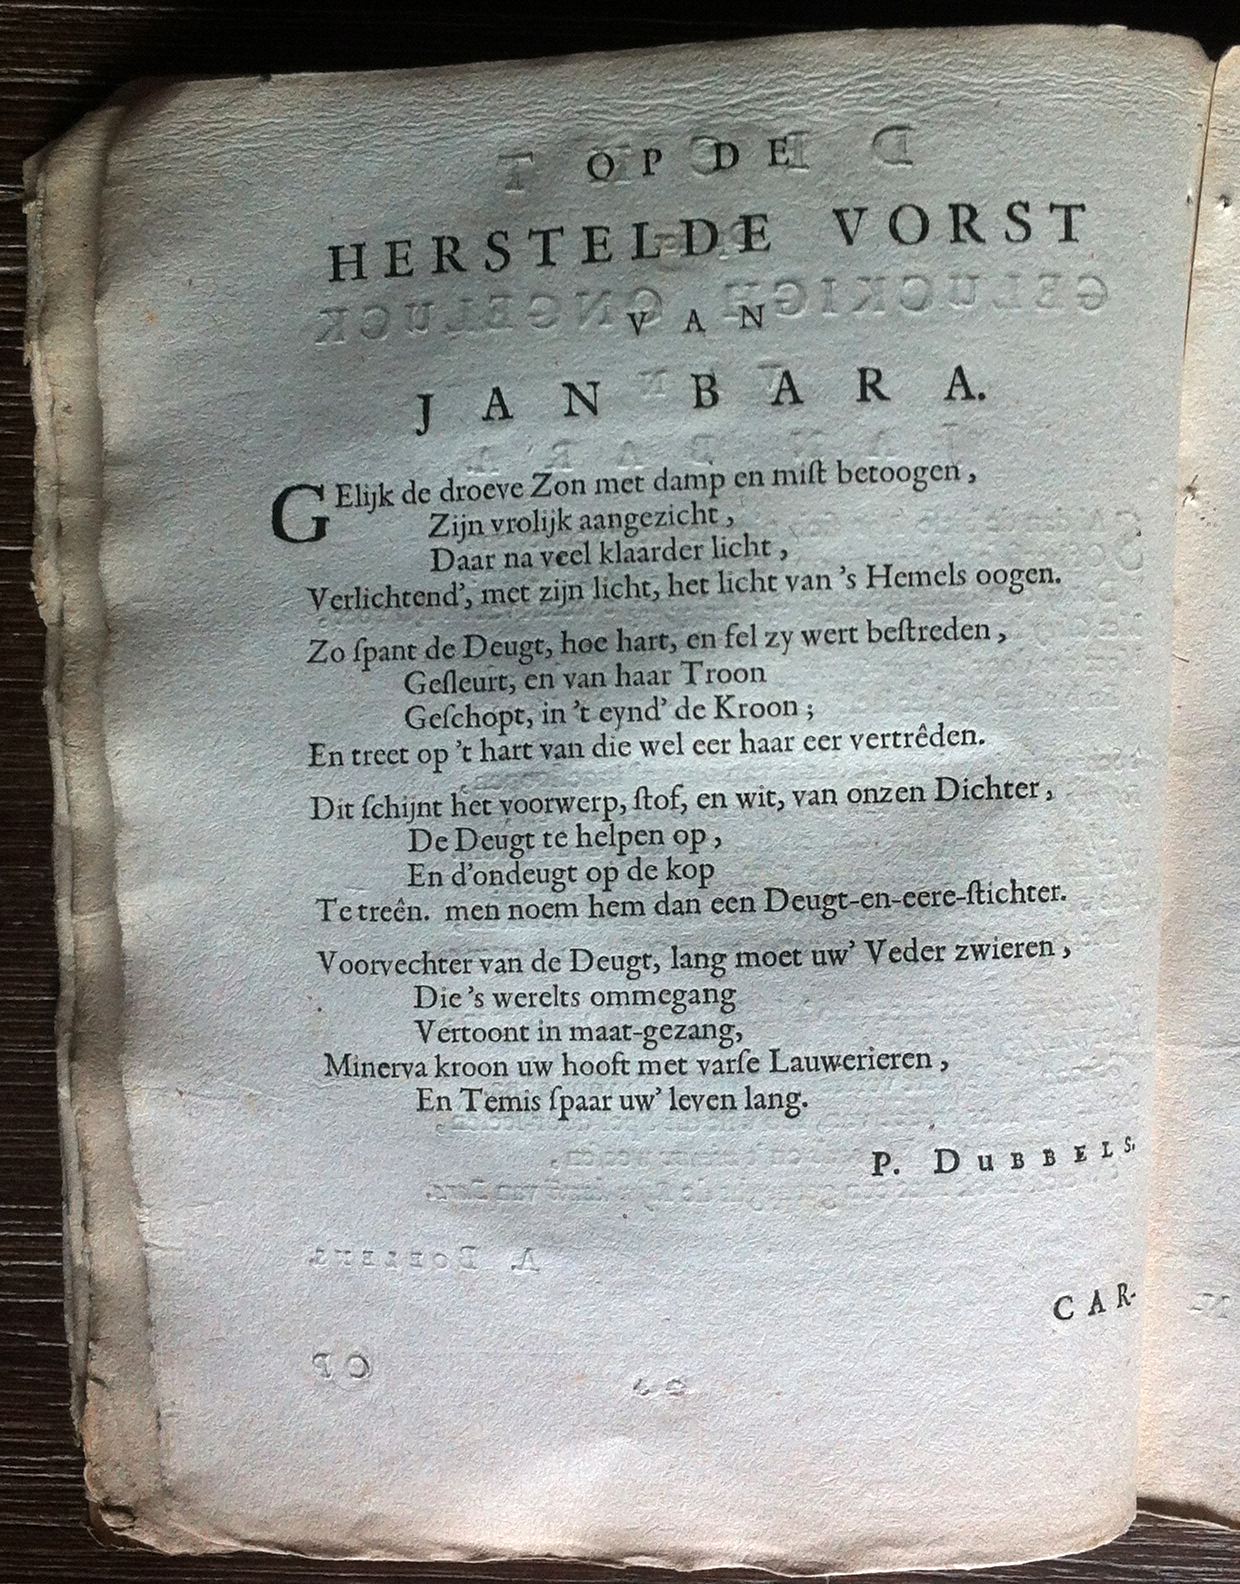 OP DE
HERSTELDE VORST
VAN
JAN BARA.
GElijk de droeve Zon met damp en miſt betoogen,
Zijn vrolijk aangezicht,
Daar na veel klaarder licht,
Verlichtend', met zijn licht, het licht van 's Hemels oogen.
Zo ſpant de Deugt, hoe hart, en fel zy wert beſtreden,
Geſleurt, en van haar Troon
Geſchopt, in 't eynd' de Kroon;
En treet op 't hart van die wel eer haar eer vertrêden.
Dit ſchijnt het voorwerp, ſtof, en wit, van onzen Dichter,
De Deugt te helpen op,
En d'ondeugt op de kop
Te treên. men noem hem dan een Deugt-en-eere-ſtichter.
Voorvechter van de Deugt, lang moet uw' Veder zwieren,
Die 's werelts ommegang
Vertoont in maat-gezang,
Minerva kroon uw hooft met varſe Lauwerieren,
En Temis ſpaar uw' leven lang.
P. DUBBELS.
CAR-